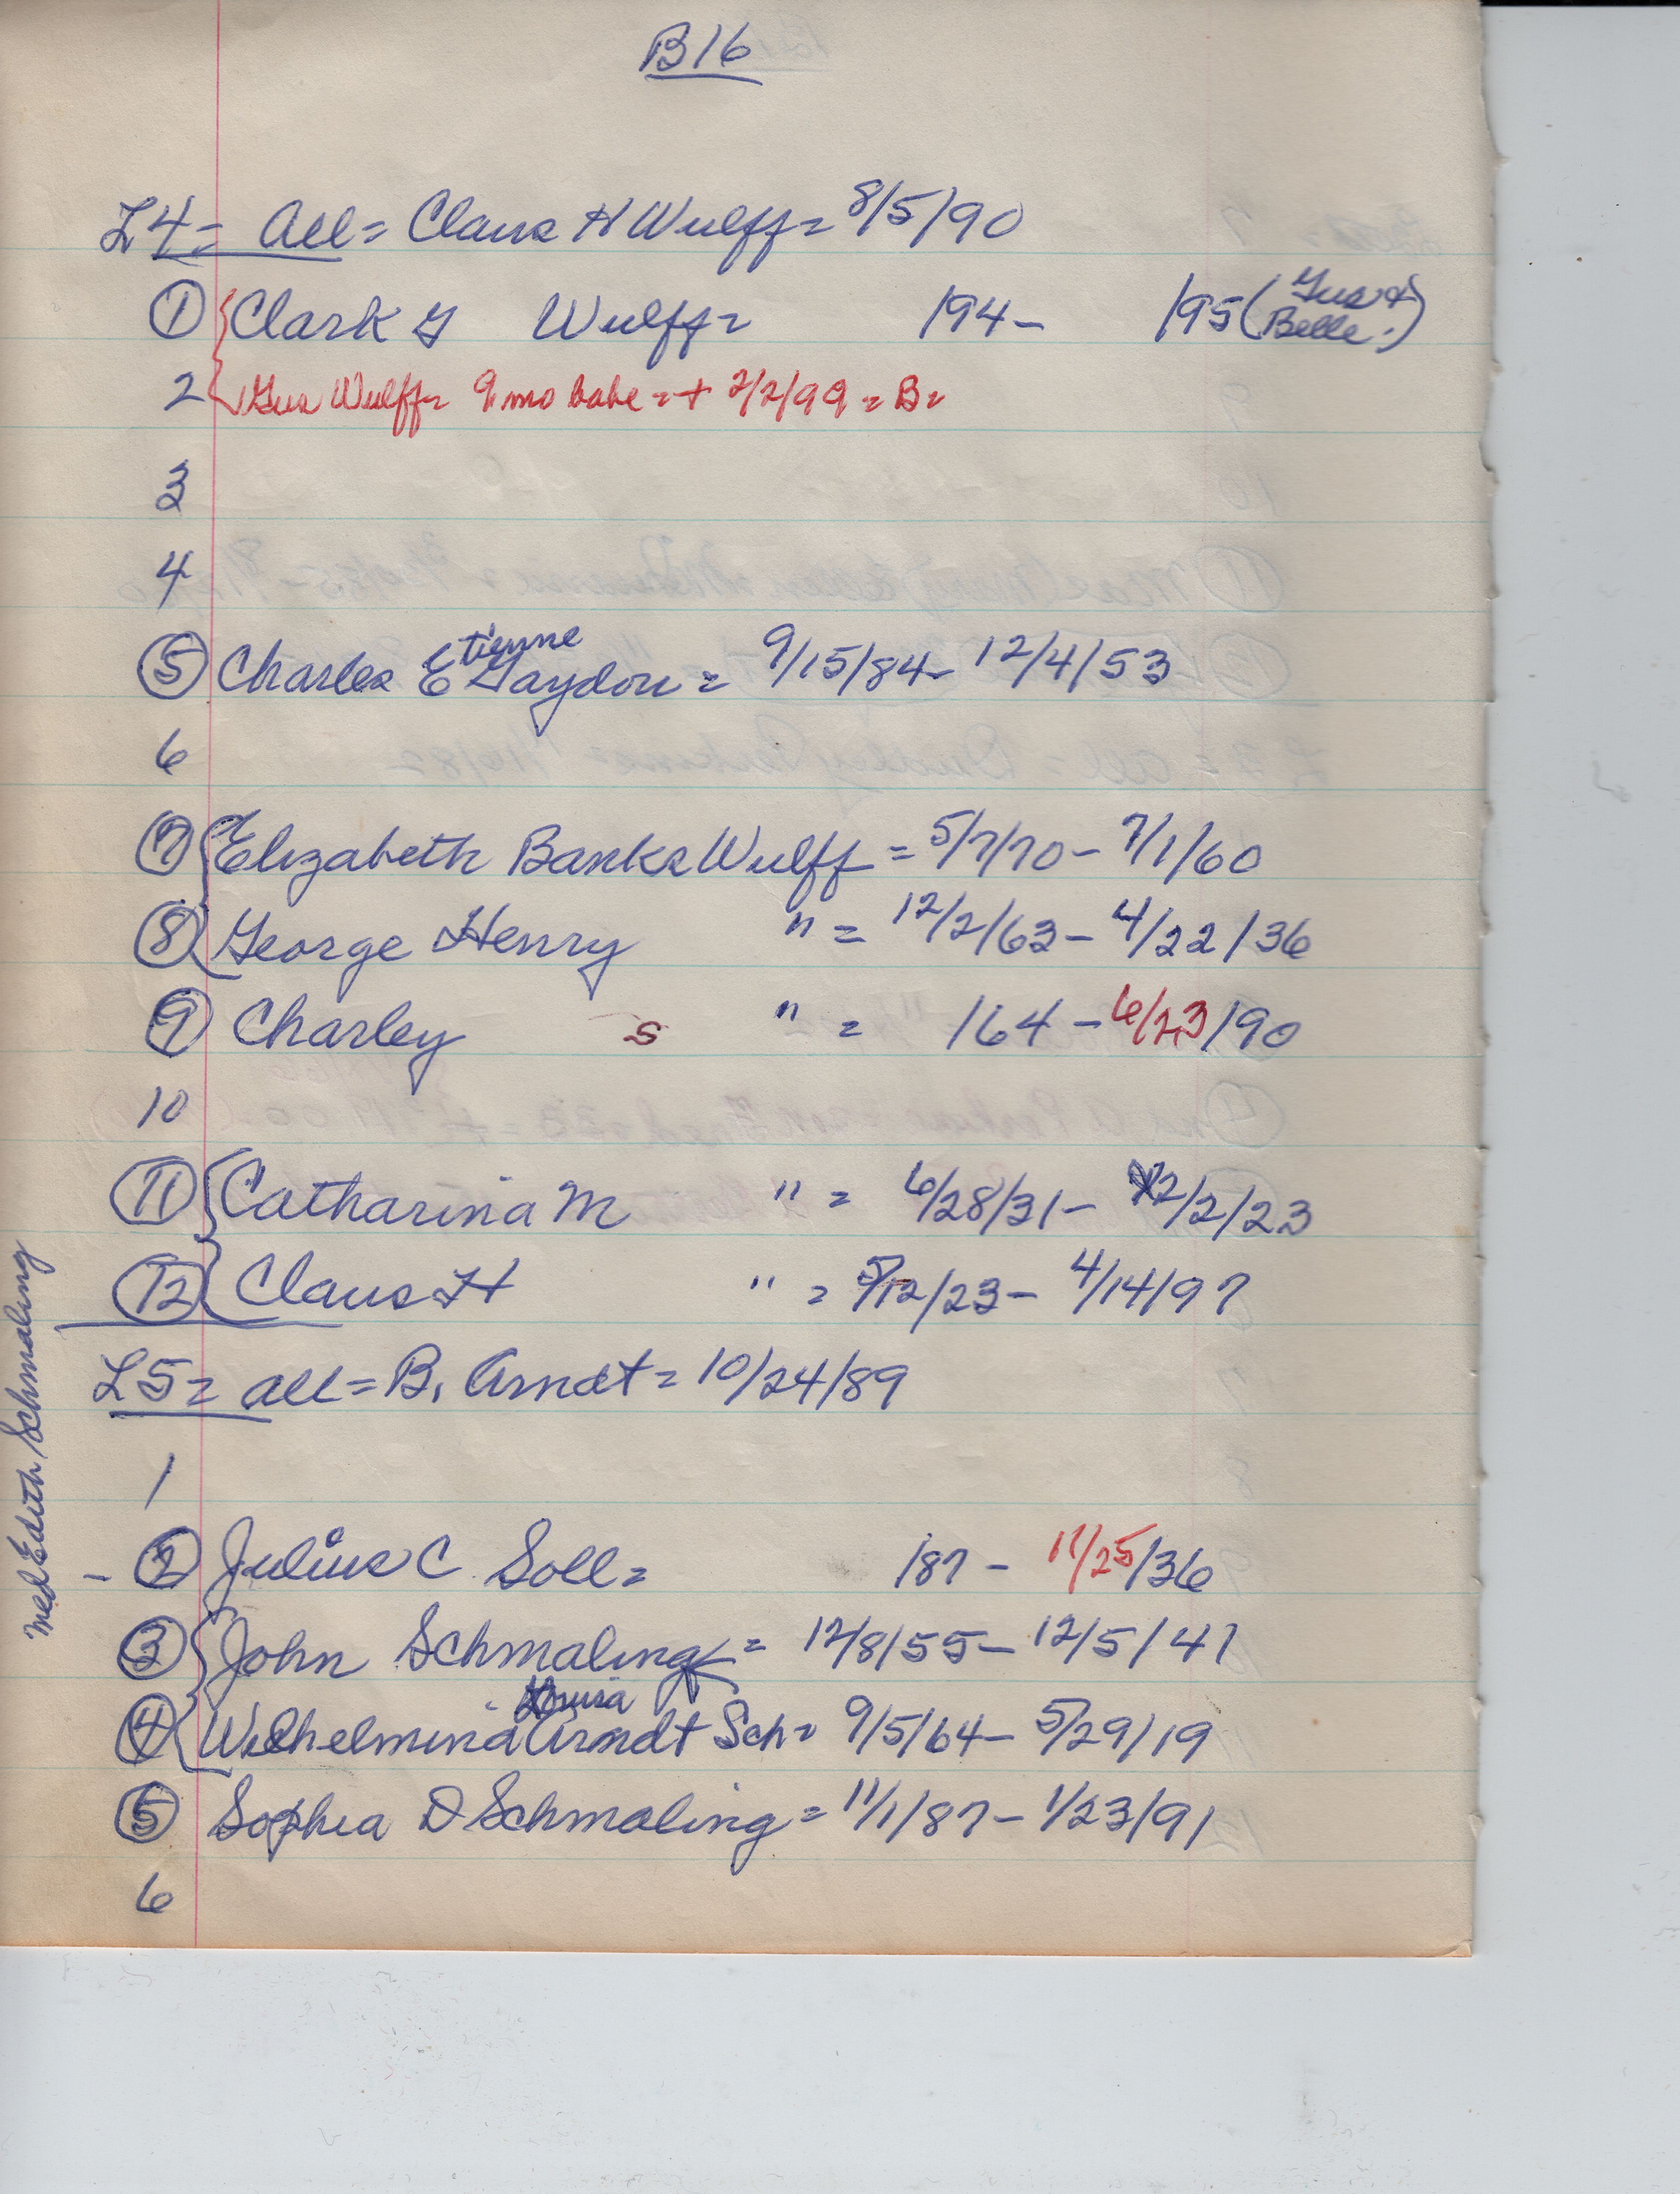 B16
L4= all= Claus H Wulff= 8/5/90
1 Clark G Wulff= /94- /95 (Gus & Belle.)
2 Gus Wulff= 9 mo babe = + 2/2/99 = B=
3
4
5 Charles Etienne Gaydou = 9/15/84- 12/4/53
6
7 Elizabeth Banks Wulff = 5/7/70- 7/1/60
8 George Henry " = 12/2/63- 4/22/36
9 Charley s " = /64 - 6/23/90
10
11 Catharina M " = 6/28/31- 12/2/23
12 Claus H " = 5/12/23- 4/14/97
L5= all= B. Arndt= 10/24/89
1
- 2 Julius C Soll= /87- 11/25/36
3 John Schmaling = 12/8/55- 12/5/47
Louisa
4 Wilhelmina Arndt Sch= 9/5/64- 5/29/19
5 Sophia D Schmaling= 11/1/87- 1/23/91
6
Edith Schmaling